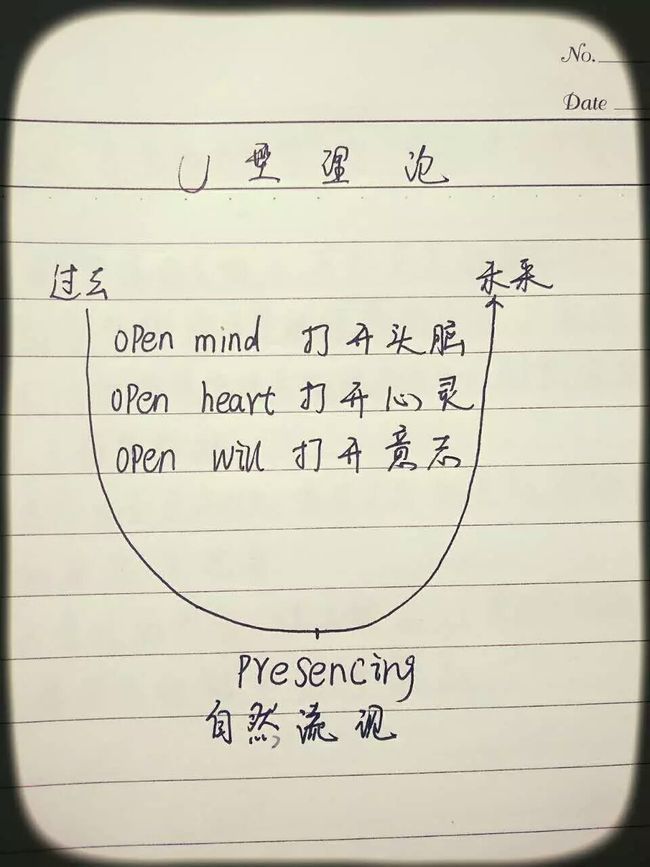 No.
Date
U型理论
过去 未来
open mind 打开头脑
open heart 打开心灵
open will 打开意志
presencing
自然流现